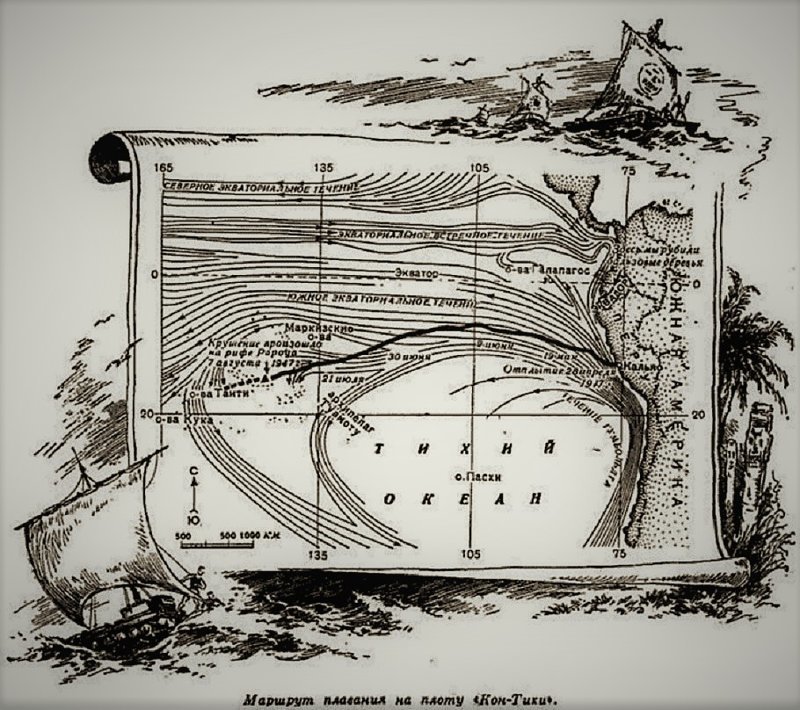 165 135 105 75
СЕВЕРНОЕ ЭКВАТОРИАЛЬНОЕ ТЕЧЕНИЕ
ЭКВАТОРИАЛЬНОЕ ВСТРЕЧНОЕ ТЕЧЕНИЕ
Здесь мы рубили
бальзовые деревья
о-ва Галапагос
0 Экватор 0
ЭКВАДОР
ЮЖНОЕ ЭКВАТОРИАЛЬНОЕ ТЕЧЕНИЕ
ЮЖНАЯ АМЕРИКА
Маркизские
о-ва
Крушение произошло
на рифе Рароиа
7 августа 1947 г.
30 июня
9 июня
19 мая
Кальяо
Отплытие 28 апреля
1947
21 июля
о-ва Таити
архипелаг
Туамоту
ТЕЧЕНИЕ ГУМБОЛЬДТА
20 20
о-ва Кука
ТИХИЙ
о.Пасхи
ОКЕАН
С
Ю
500 500 1000 км.
135 105 75
Маршрут плавания на плоту «Кон-Тики».